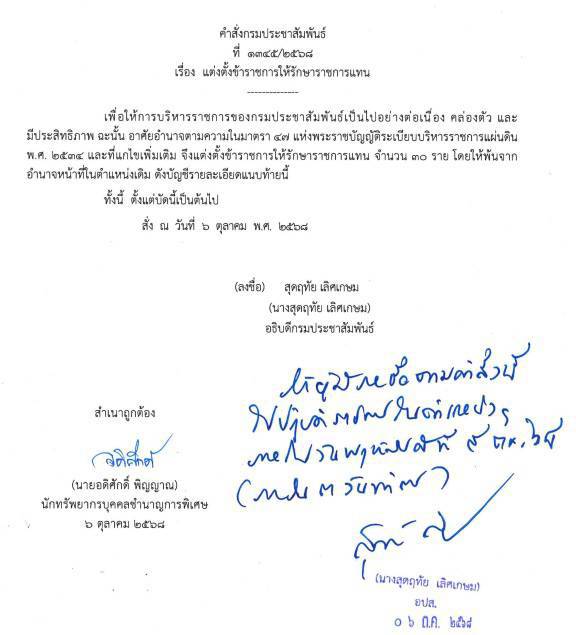 คำสั่งกรมประชาสัมพันธ์
ที่ ๑๓๔๕/๒๕๖๘
เรื่อง แต่งตั้งข้าราชการให้รักษาราชการแทน
--------------
เพื่อให้การบริหารราชการของกรมประชาสัมพันธ์เป็นไปอย่างต่อเนื่อง คล่องตัว และ
มีประสิทธิภาพ ฉะนั้น อาศัยอำนาจตามความในมาตรา ๔๗ แห่งพระราชบัญญัติระเบียบบริหารราชการแผ่นดิน
พ.ศ. ๒๕๓๔ และที่แก้ไขเพิ่มเติม จึงแต่งตั้งข้าราชการให้รักษาราชการแทน จำนวน ๓๐ ราย โดยให้พ้นจาก
อำนาจหน้าที่ในตำแหน่งเดิม ดังบัญชีรายละเอียดแนบท้ายนี้
ทั้งนี้ ตั้งแต่บัดนี้เป็นต้นไป
สั่ง ณ วันที่ ๖ ตุลาคม พ.ศ. ๒๕๖๘
(ลงชื่อ) สุดฤทัย เลิศเกษม
(นางสุดฤทัย เลิศเกษม)
อธิบดีกรมประชาสัมพันธ์
ให้ผู้มีรายชื่อตามคำสั่งนี้
ไปปฏิบัติราชการในตำแหน่ง
ภายในวันพฤหัสบดีที่ ๙ ต.ค. ๖๘
(ภายใน ๓ วันทำการ)
สำเนาถูกต้อง
อดิศักดิ์
(นายอดิศักดิ์ พิญญาณ)
นักทรัพยากรบุคคลชำนาญการพิเศษ
๖ ตุลาคม ๒๕๖๘
(นางสุดฤทัย เลิศเกษม)
อปส.
๐๖ ต.ค. ๒๕๖๘